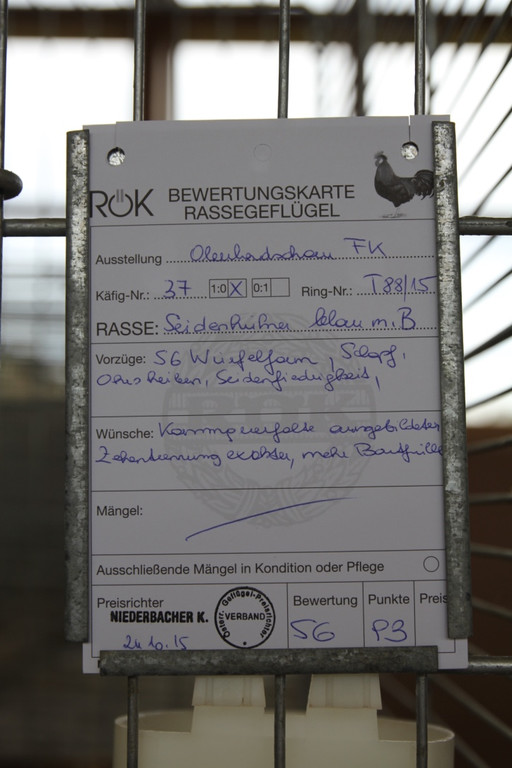 RÖK BEWERTUNGSKARTE
RASSEGEFLÜGEL
Ausstellung FK
Käfig-Nr.: 37 1:0 X 0:1 Ring-Nr.: T88/15
RASSE: Seidenhühner blau m. B
Vorzüge: SG Würfelform, Schopf,
Ohrscheiben, Seidenfiedrigkeit,
Wünsche: Kammperlfalte ausgebildeter
Zehentrennung exakter, mehr Bartfülle
Mängel:
Ausschließende Mängel in Kondition oder Pflege
Preisrichter Bewertung Punkte Preis
NIEDERBACHER K.
Österr. Geflügel-Preisrichter VERBAND
SG 93
24.10.15